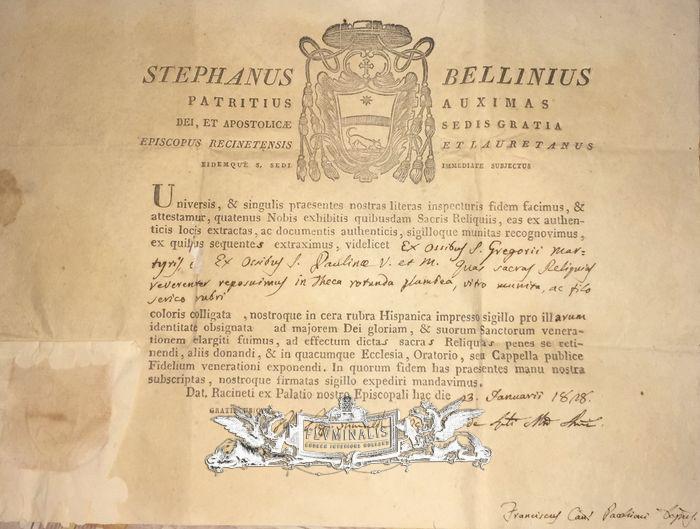 STEPHANUS BELLINIUS
PATRITIUS AUXIMAS
DEI, ET APOSTOLICÆ SEDIS GRATIA
EPISCOPUS RECINETENSIS ET LAURETANUS
EIDEMQUE S. SEDI IMMEDIATE SUBJECTUS
Universis, & singulis praesentes nostras literas inspecturis fidem facimus, &
attestamur, quatenus Nobis exhibitis quibusdam Sacris Reliquiis, eas ex authen-
ticis locis extractas, ac documentis authenticis, sigilloque munitas recognovimus,
ex quibus sequentes extraximus, videlicet Ex Ossibus S. Gregorii mar-
tyris Ex Ossibus S. Paulinæ V. et M. quas sacras Reliquias
reverenter reposuimus in theca rotunda plumbea, vitro munita, ac filo
serico rubri
coloris colligata, nostroque in cera rubra Hispanica impresso sigillo pro illarum
identitate obsignata ad majorem Dei gloriam, & suorum Sanctorum venera-
tionem elargiti fuimus, ad effectum dictas sacras Reliquias penes se reti-
nendi, aliis donandi, & in quacumque Ecclesia, Oratorio, seu Cappella publice
Fidelium venerationi exponendi. In quorum fidem has praesentes manu nostra
subscriptas, nostroque firmatas sigillo expediri mandavimus.
Dat. Racineti ex Palatio nostro Episcopali hac die 23. Januarii 1828.
GRATIS UBIQUE
FLVMINALIS
Franciscus Can.